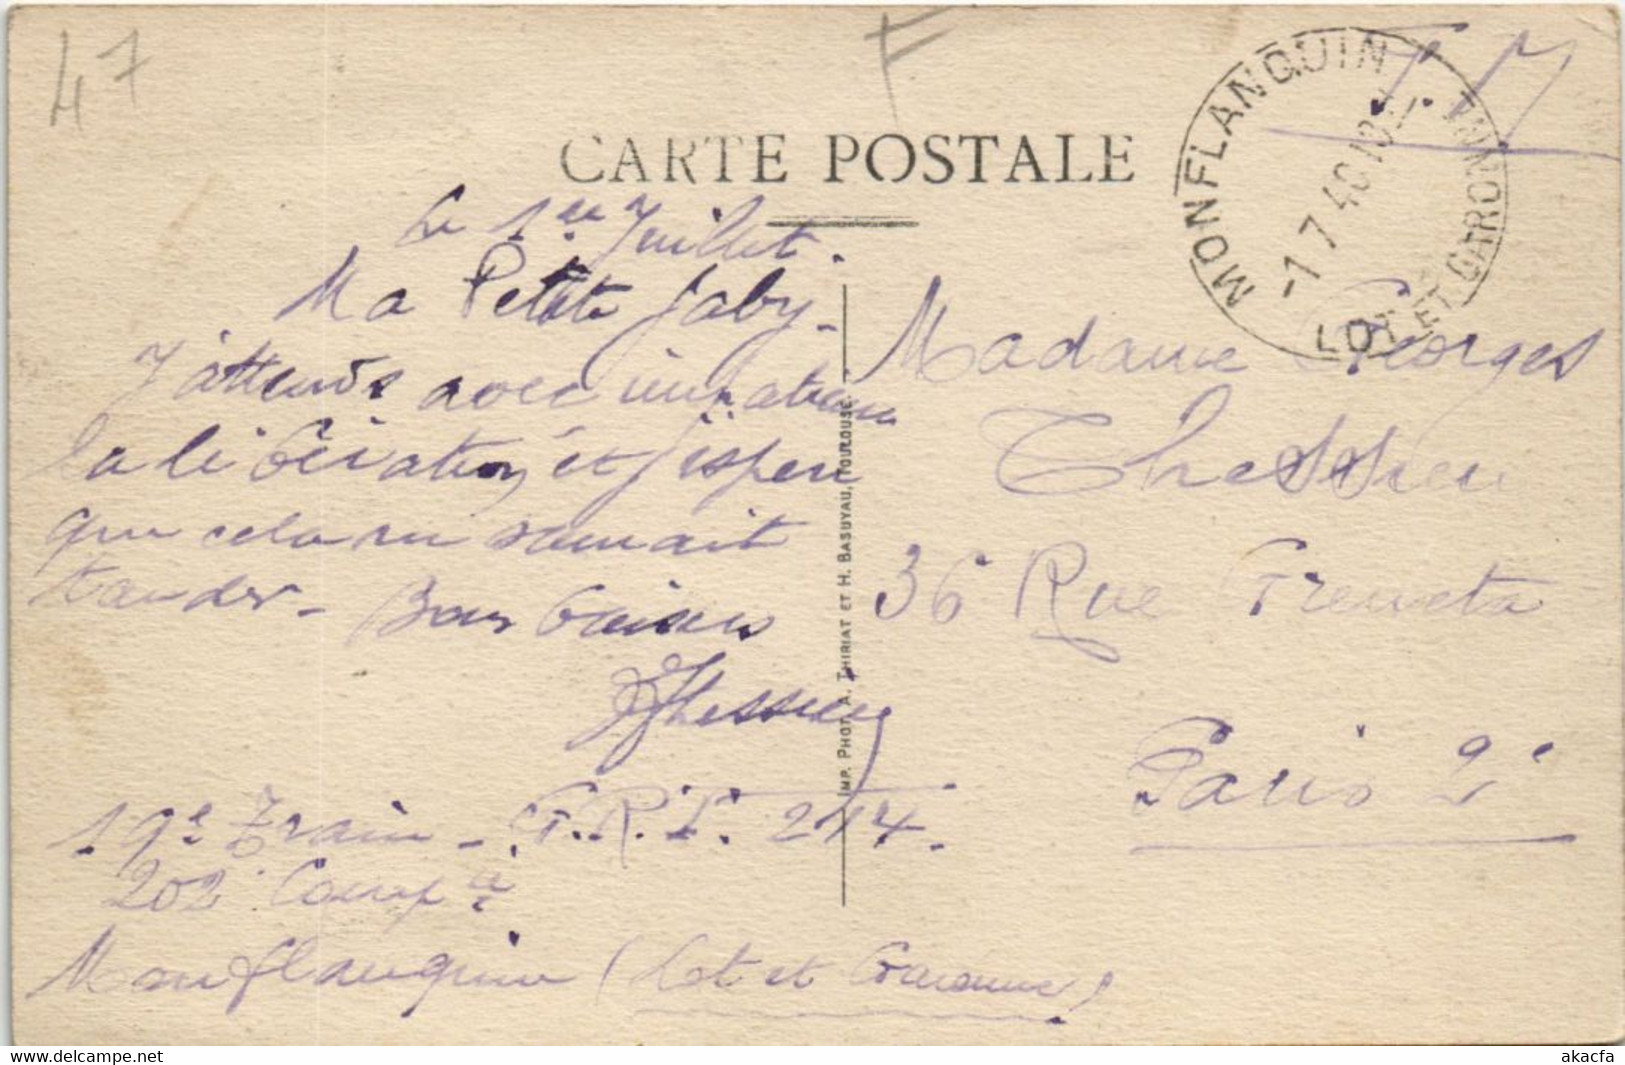 47
F
F M
CARTE POSTALE
MONFLANQUIN
-1 7 40 18
LOT ET GARONNE
Le 1er Juillet.
Ma Petite Gaby -
J'attends avec impatience
la libération, et j'espère
que cela ne saurait
tarder - Bons baisers
GThessieu
19e Train - G.R.T. 214.
202e Compie
Monflanquin (Lot et Garonne)
IMP. PHOT. A. THIRIAT ET H. BASUYAU, TOULOUSE
Madame Georges
Thessieu
36 Rue Greneta
Paris 2e
www.delcampe.net
akacfa